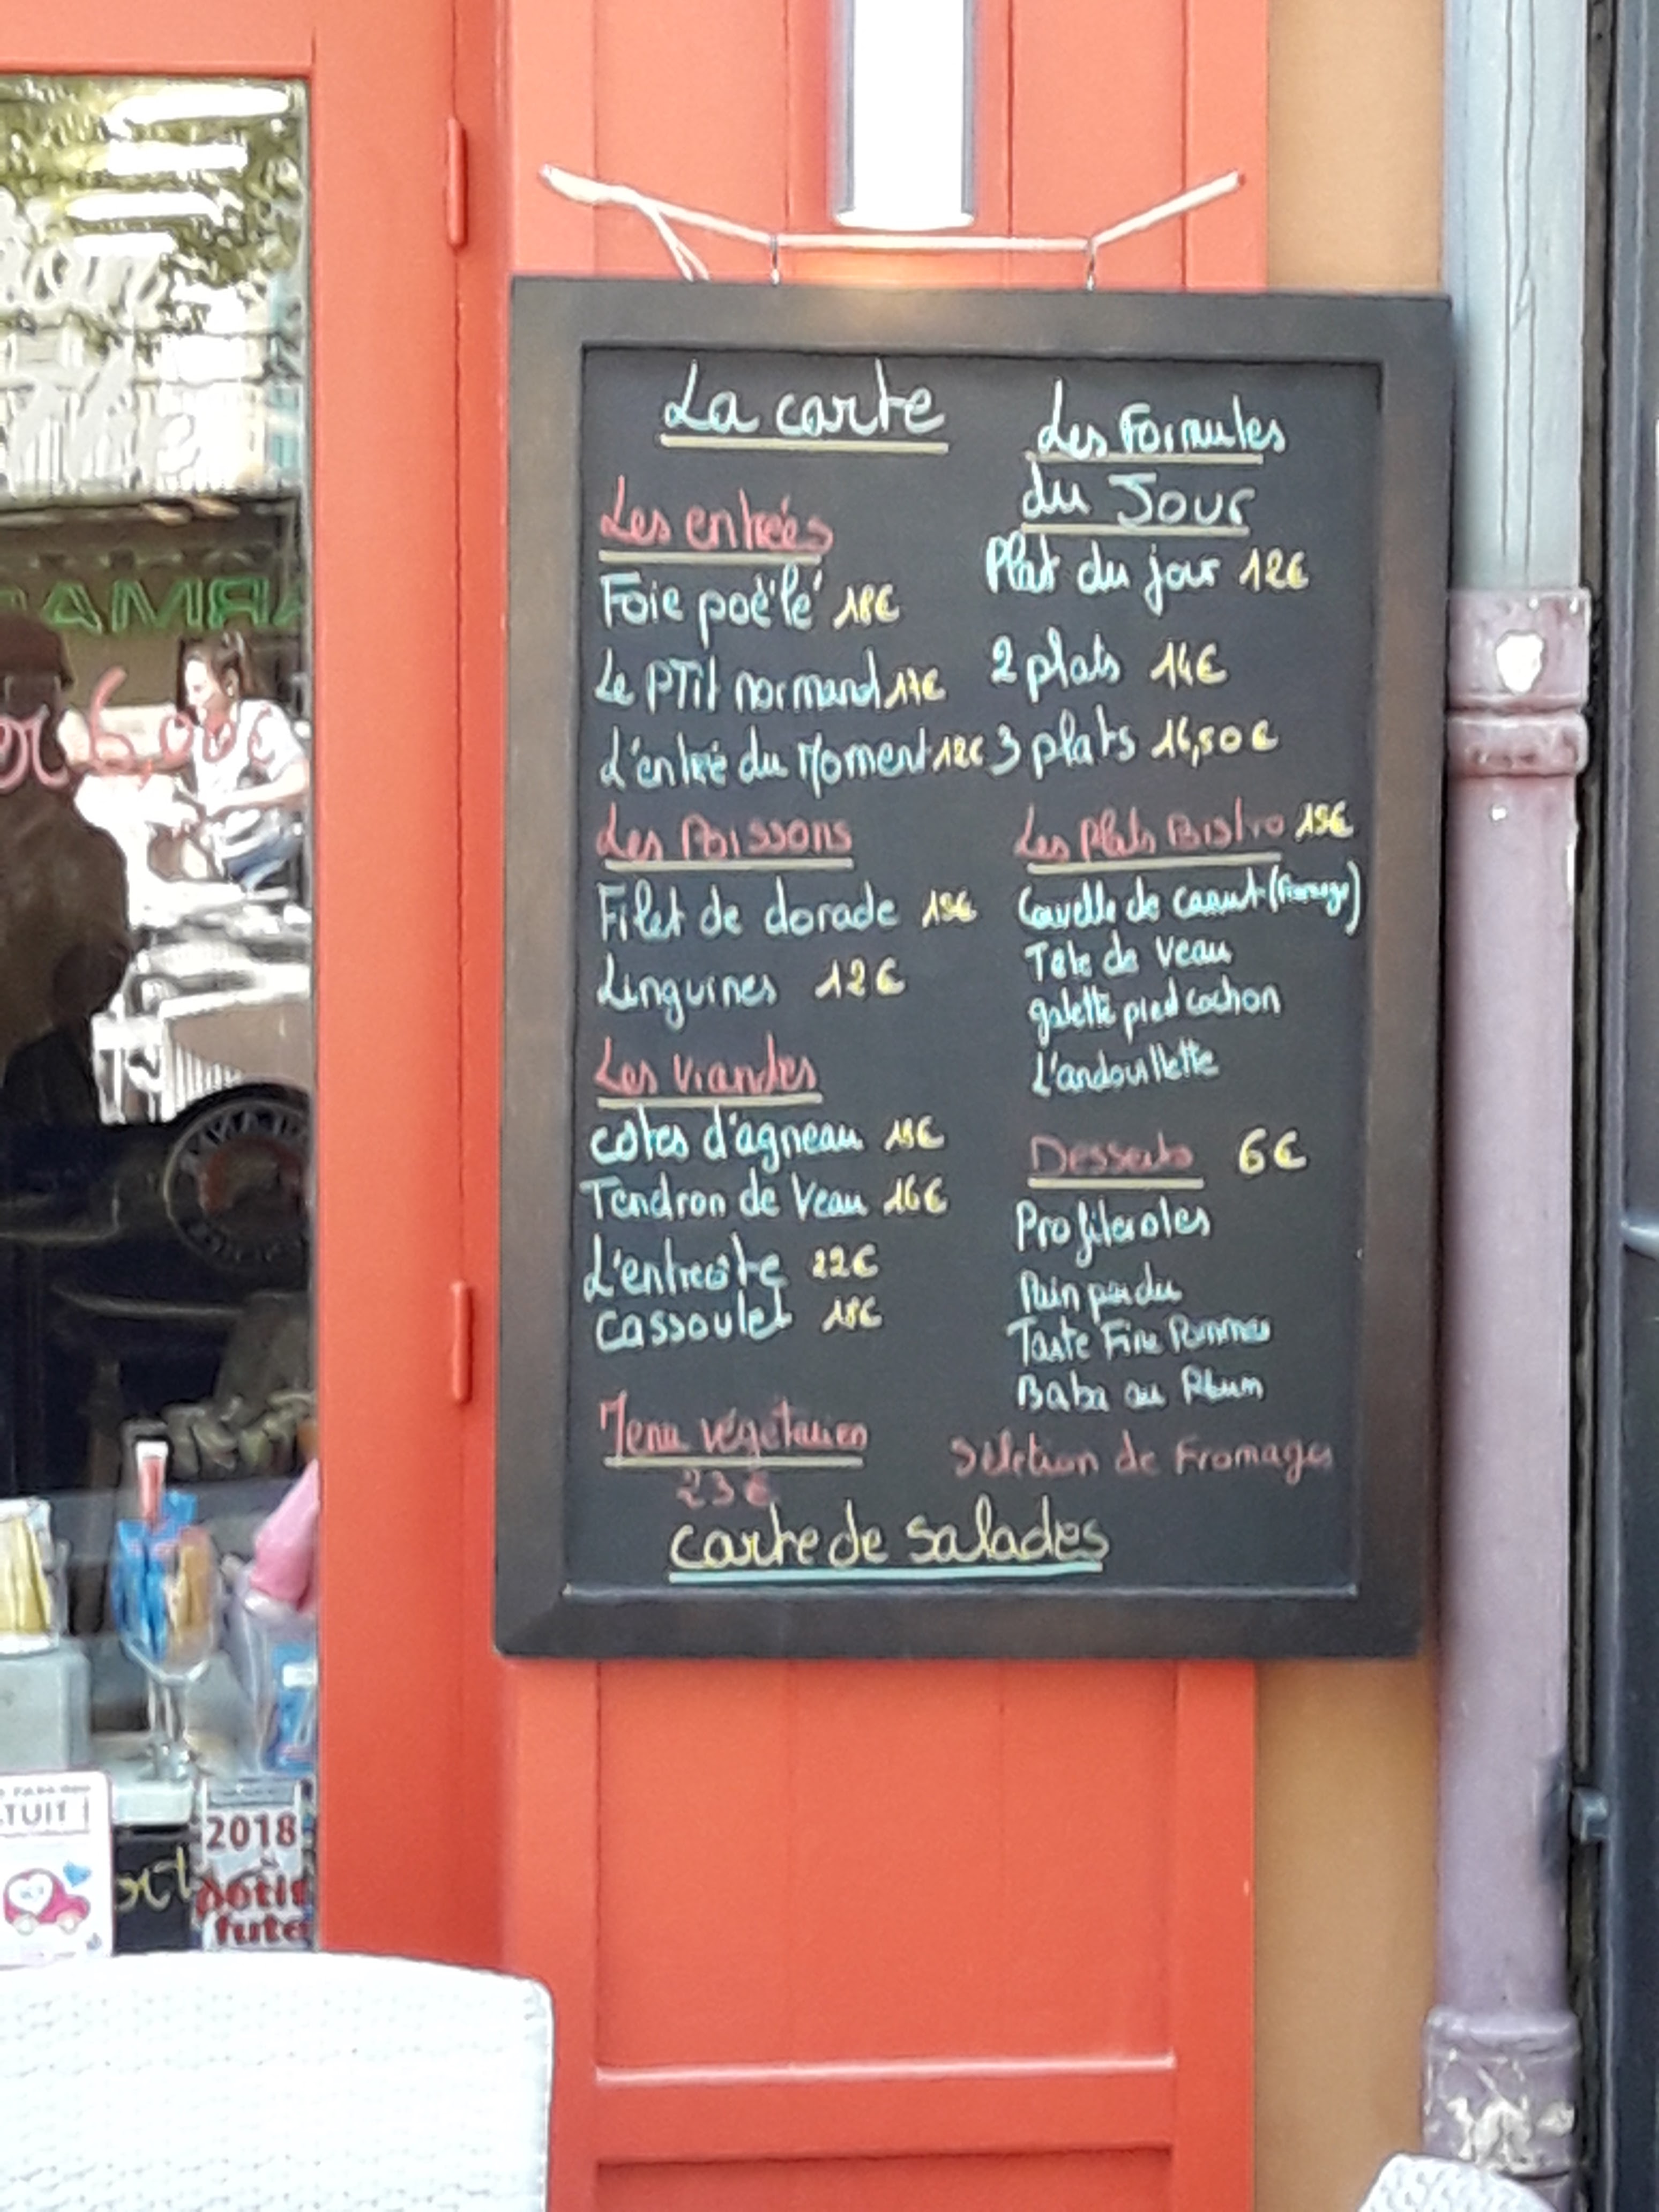 La carte
Les entrées
Foie poëlé 18€
Le PTit normand 17€
L'entrée du Moment 12€
Les Poissons
Filet de dorade 15€
Linguines 12€
Les Viandes
cotes d'agneau 15€
Tendron de Veau 16€
L'entrecôte 22€
Cassoulet 18€
Menu végétarien
23€
Les Formules
du Jour
Plat du jour 12€
2 plats 14€
3 plats 16,50€
Les plats Bistro 15€
Cervelle de canut (fromage)
Tête de Veau
galette pied cochon
L'andouillette
Desserts 6€
Profiteroles
Pain perdu
Tarte Fine Pommes
Baba au Rhum
Séléction de Fromages
carte de salades
2018
petit
futé